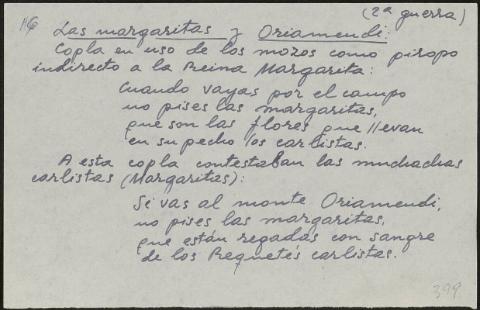 (2ª guerra)
116 Las margaritas y Oriamendi:
Copla en uso de los mozos como piropo
indirecto a la Reina Margarita:
Cuando vayas por el campo
no pises las margaritas,
que son las flores que llevan
en su pecho los carlistas.
A esta copla contestaban las muchachas
carlistas (Margaritas):
Si vas al monte Oriamendi,
no pises las margaritas,
que están regadas con sangre
de los Requetés carlistas.
399